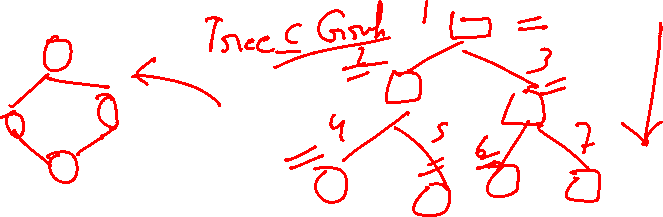 Tree ⊂ Graph
1
2
3
4 5 6 7